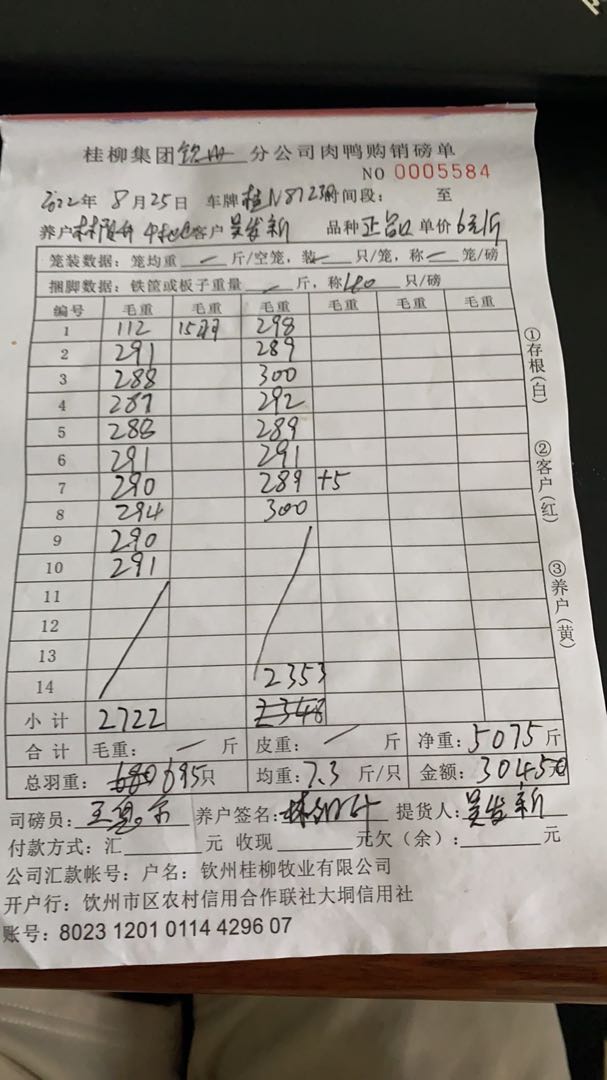 桂柳集团钦州分公司肉鸭购销磅单
NO 0005584
2022年 8月25日 车牌桂N8723 时间段: 至
养户 客户 吴发新 品种 正品 单价 6元/斤
笼装数据: 笼均重 — 斤/空笼, 装— 只/笼, 称— 笼/磅
捆脚数据: 铁筐或板子重量 — 斤, 称40 只/磅
编号 毛重 毛重 毛重 毛重 毛重 毛重
1 112 15羽 298
2 291 289
3 288 300
4 287 292
5 288 289
6 291 291
7 290 289 +5
8 294 300
9 290
10 291
11
12
13
14 2353
小计 2722 2348
合计 毛重: — 斤 皮重: — 斤 净重: 5075斤
总羽重: 680 695只 均重: 7.3 斤/只 金额: 30450
司磅员: 养户签名: 提货人: 吴发新
付款方式: 汇 元 收现 元欠(余): 元
公司汇款帐号: 户名: 钦州桂柳牧业有限公司
开户行: 饮州市区农村信用合作联社大垌信用社
账号: 8023 1201 0114 4296 07
①存根(白)
②客户(红)
③养户(黄)